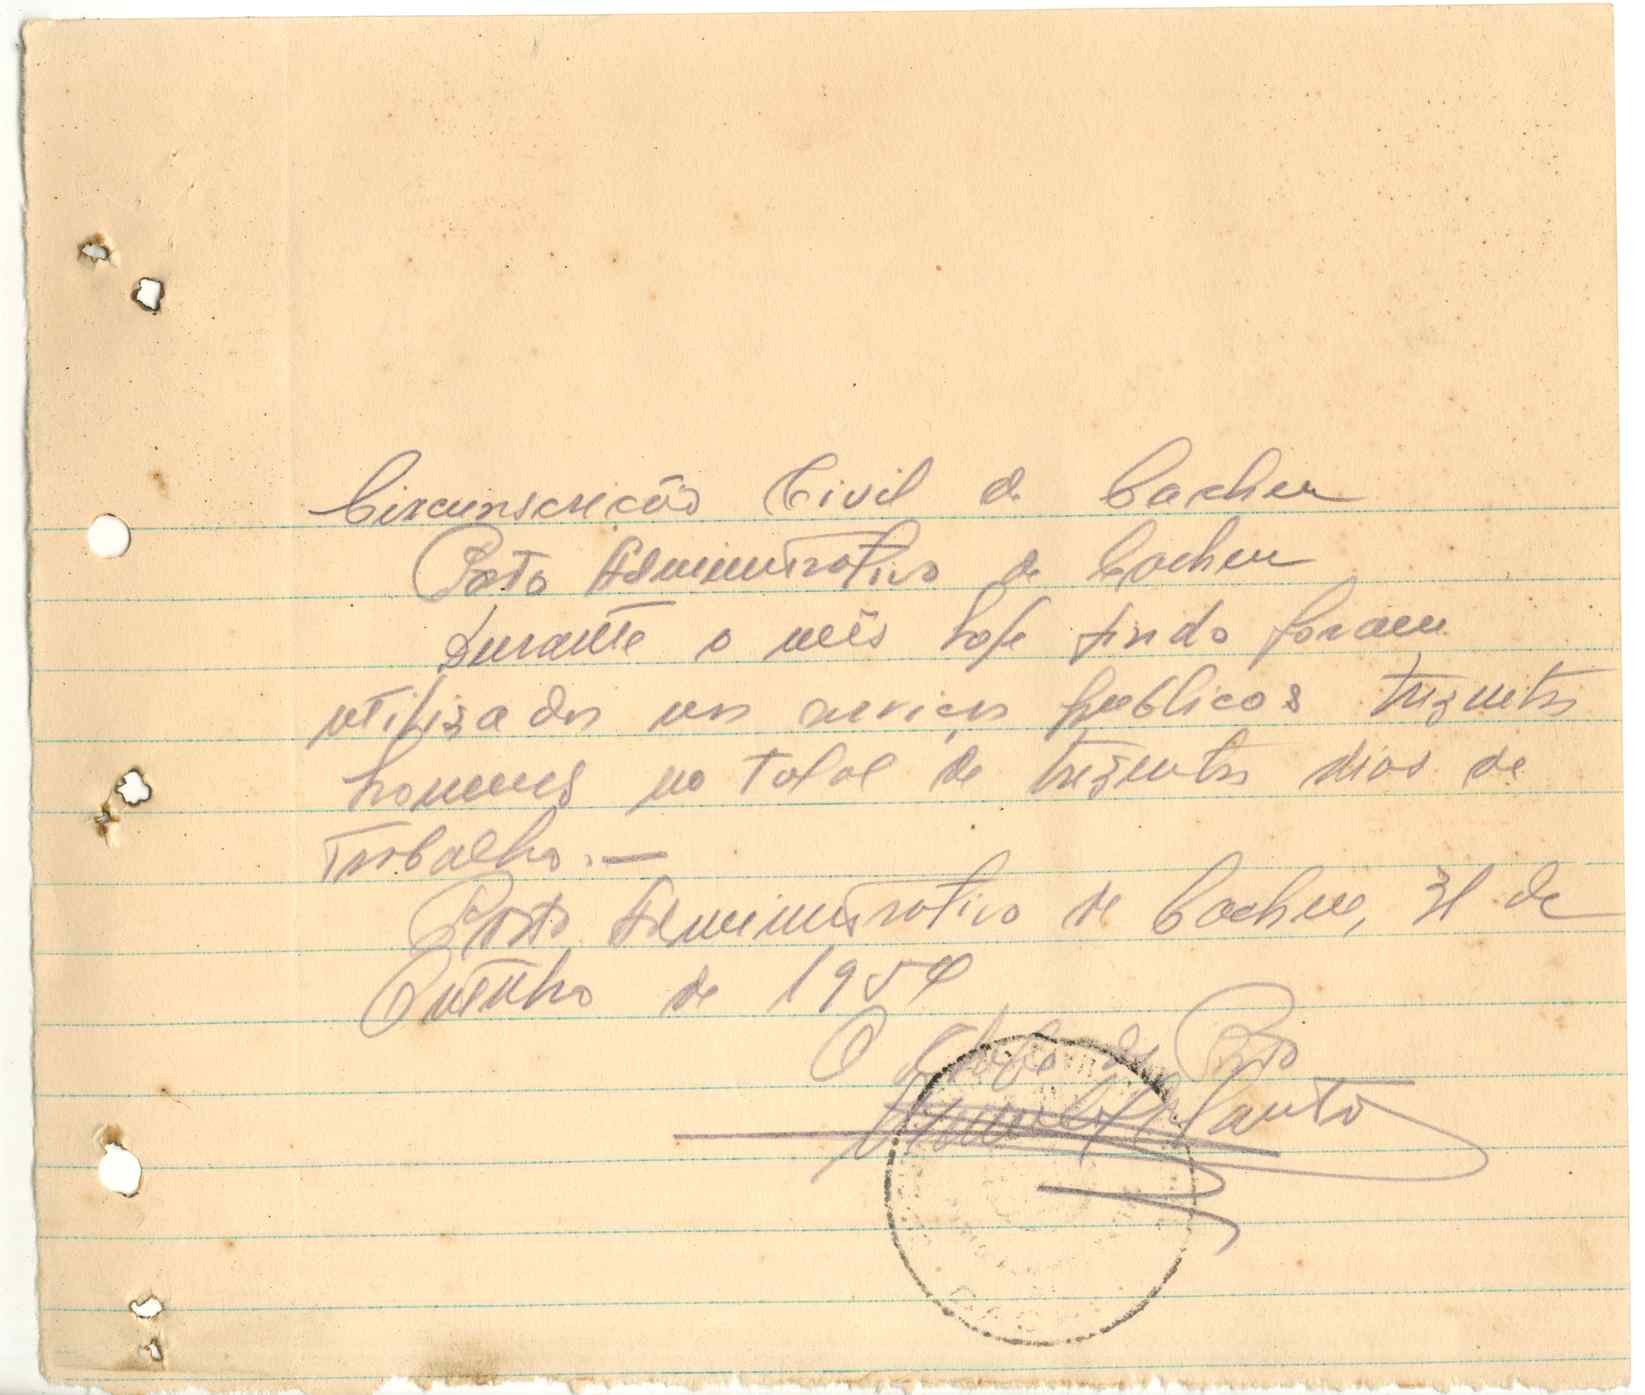 Circunscrição Civil de Cacheu
Posto Administrativo de Cacheu
Durante o mês hoje findo foram
utilizados nos serviços publicos trezentos
homens no total de trezentos dias de
trabalho.—
Posto Administrativo de Cacheu, 31 de
Outubro de 1954
O Chefe do Posto